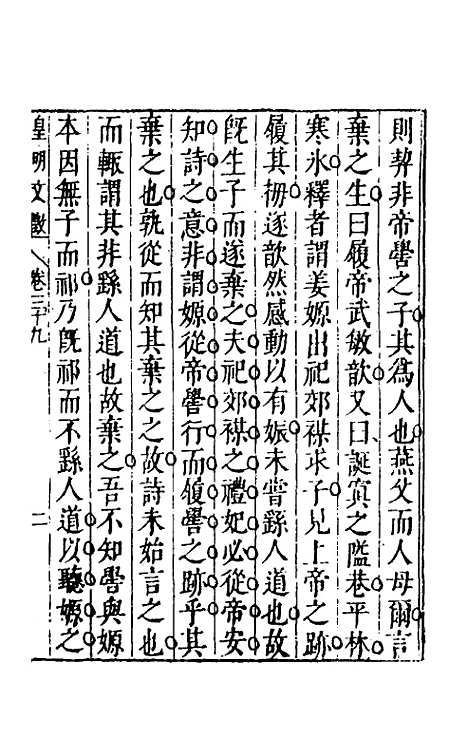 則契非帝嚳之子其為人也燕父而人母爾言
棄之生曰履帝武敏歆又曰誕寘之隘巷平林
寒氷釋者謂姜嫄出祀郊禖求子見上帝之跡
履其拇遂歆然感動以有娠未嘗繇人道也故
旣生子而遂棄之夫祀郊禖之禮妃必從帝安
知詩之意非謂嫄從帝嚳行而履嚳之跡乎其
棄之也孰從而知其棄之之故詩未始言之也
而輙謂其非繇人道也故棄之吾不知嚳與嫄
本因無子而祁乃旣祁而不繇人道以聽嫄之
皇明文徵 卷三十九 二